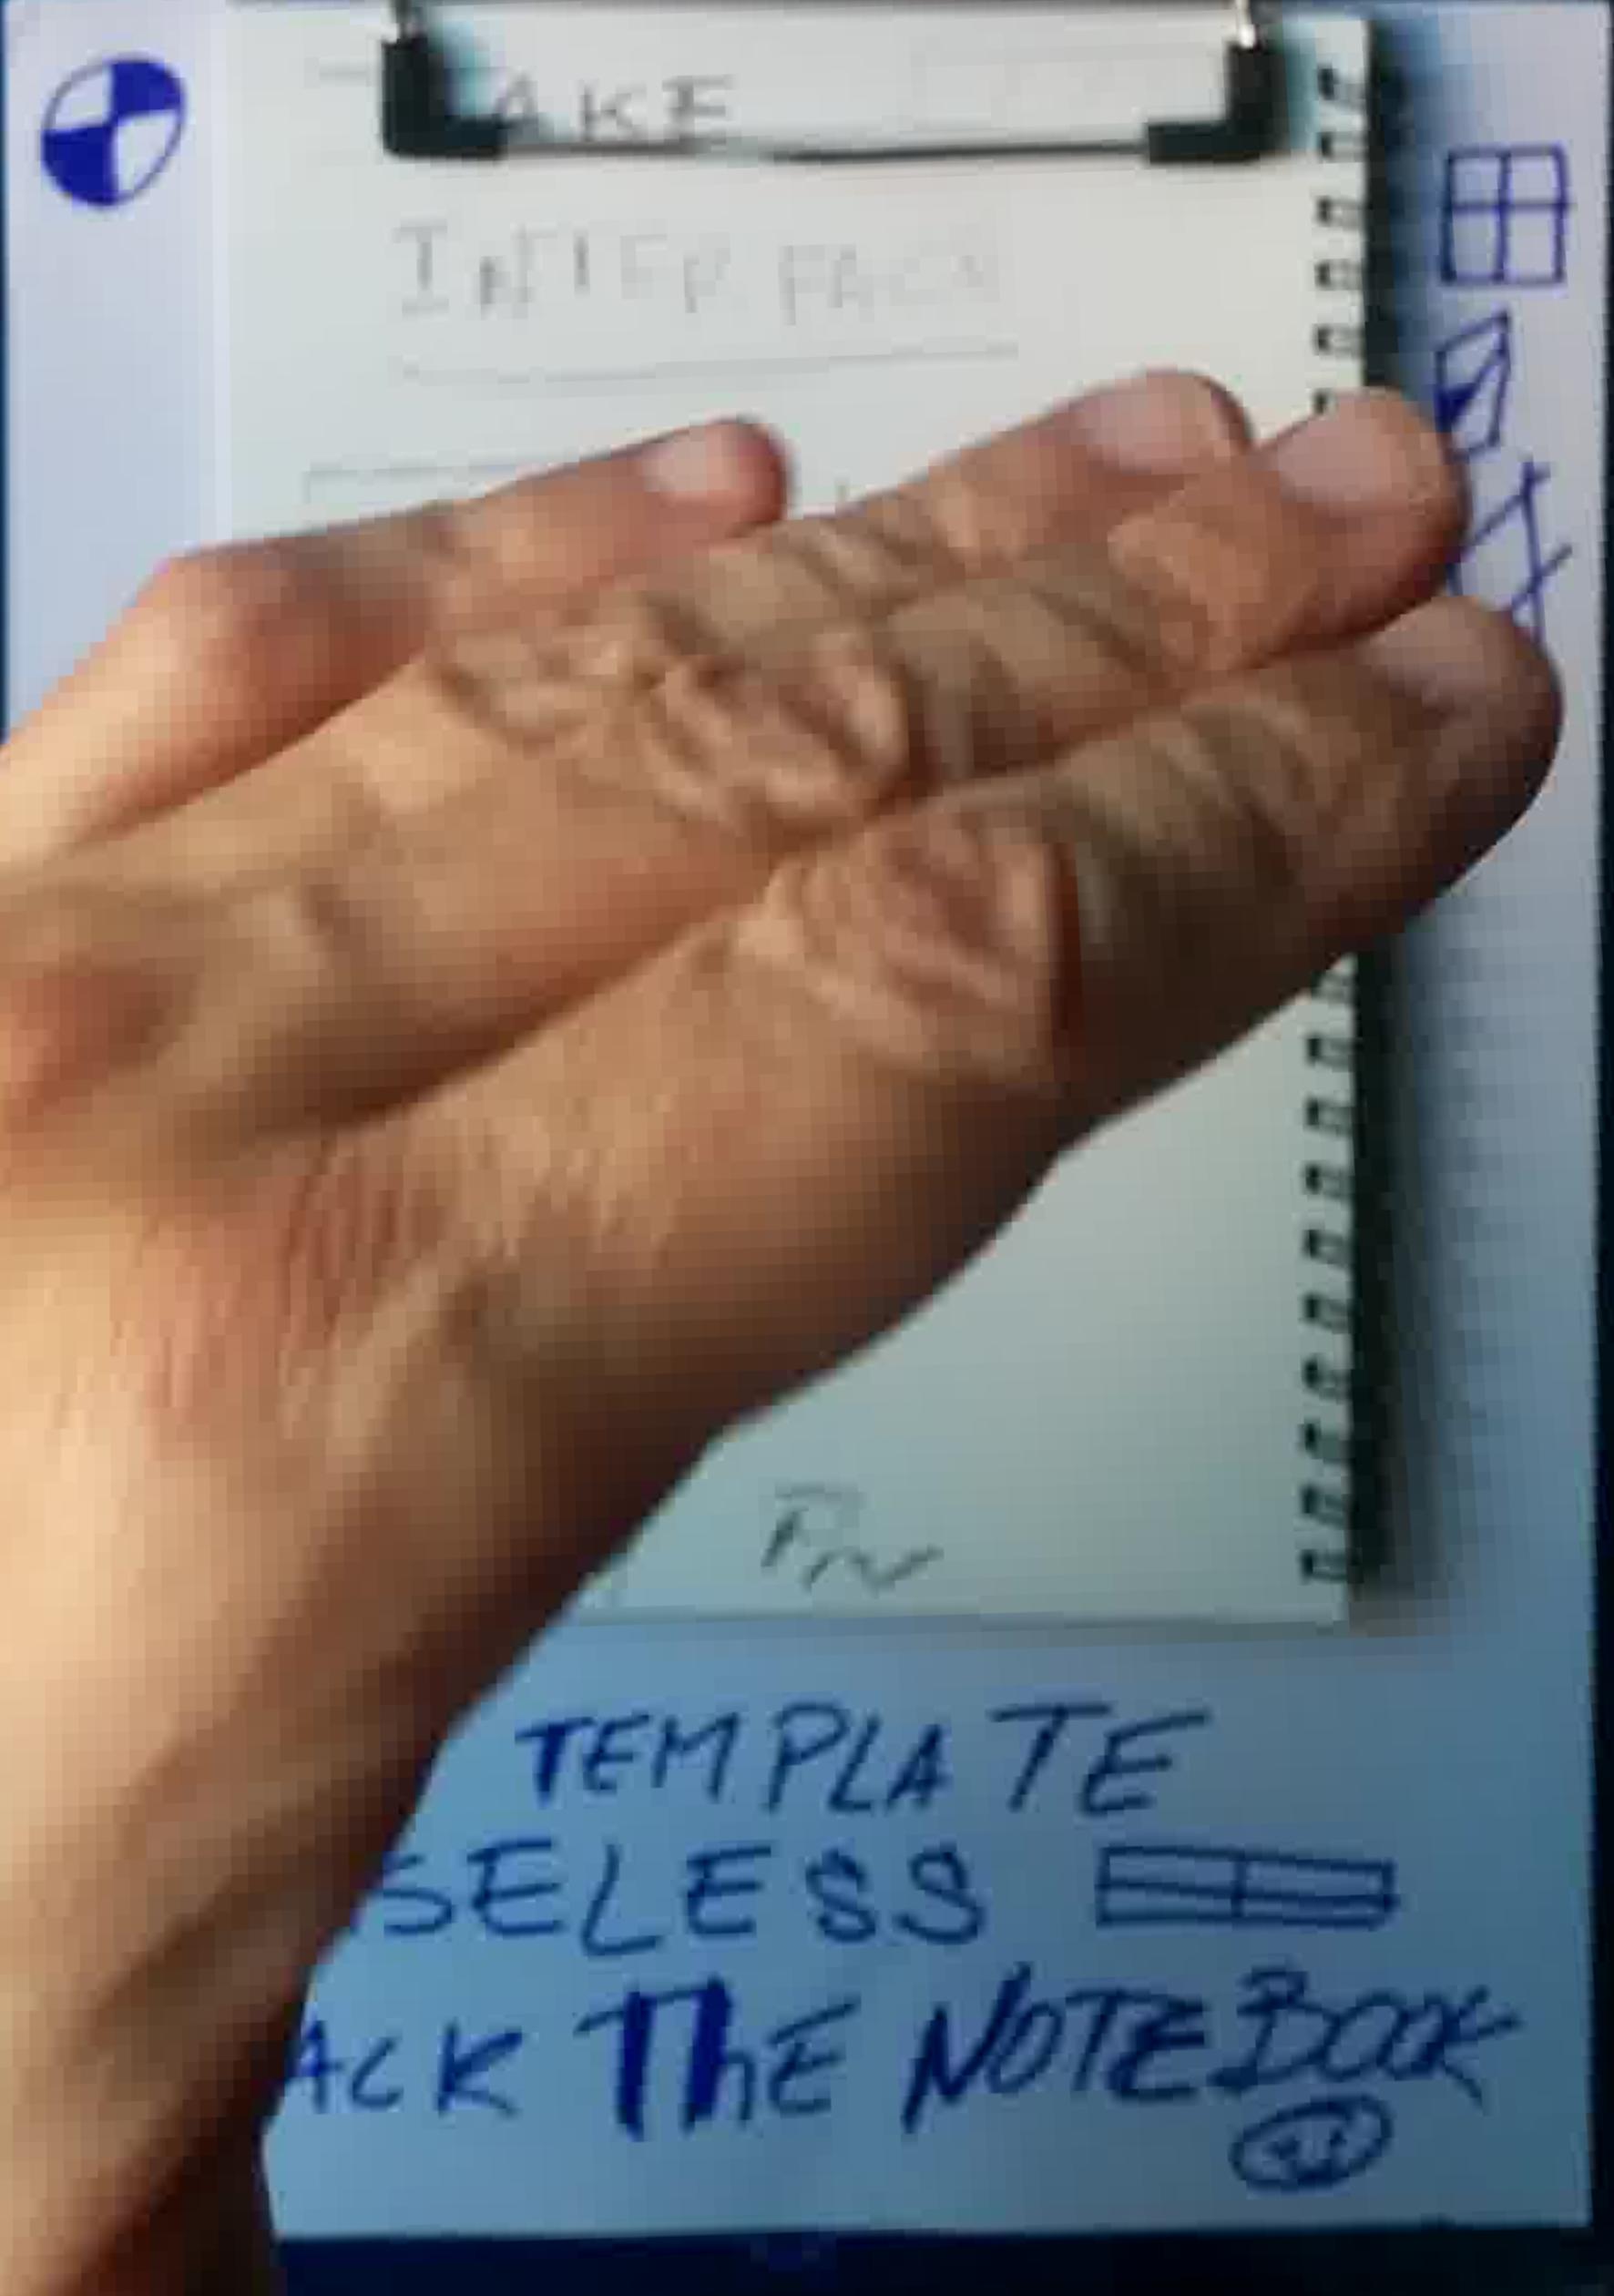 AKE
INTERFACE
TEMPLATE
SELESS
ACK ThE NOTEBOOK